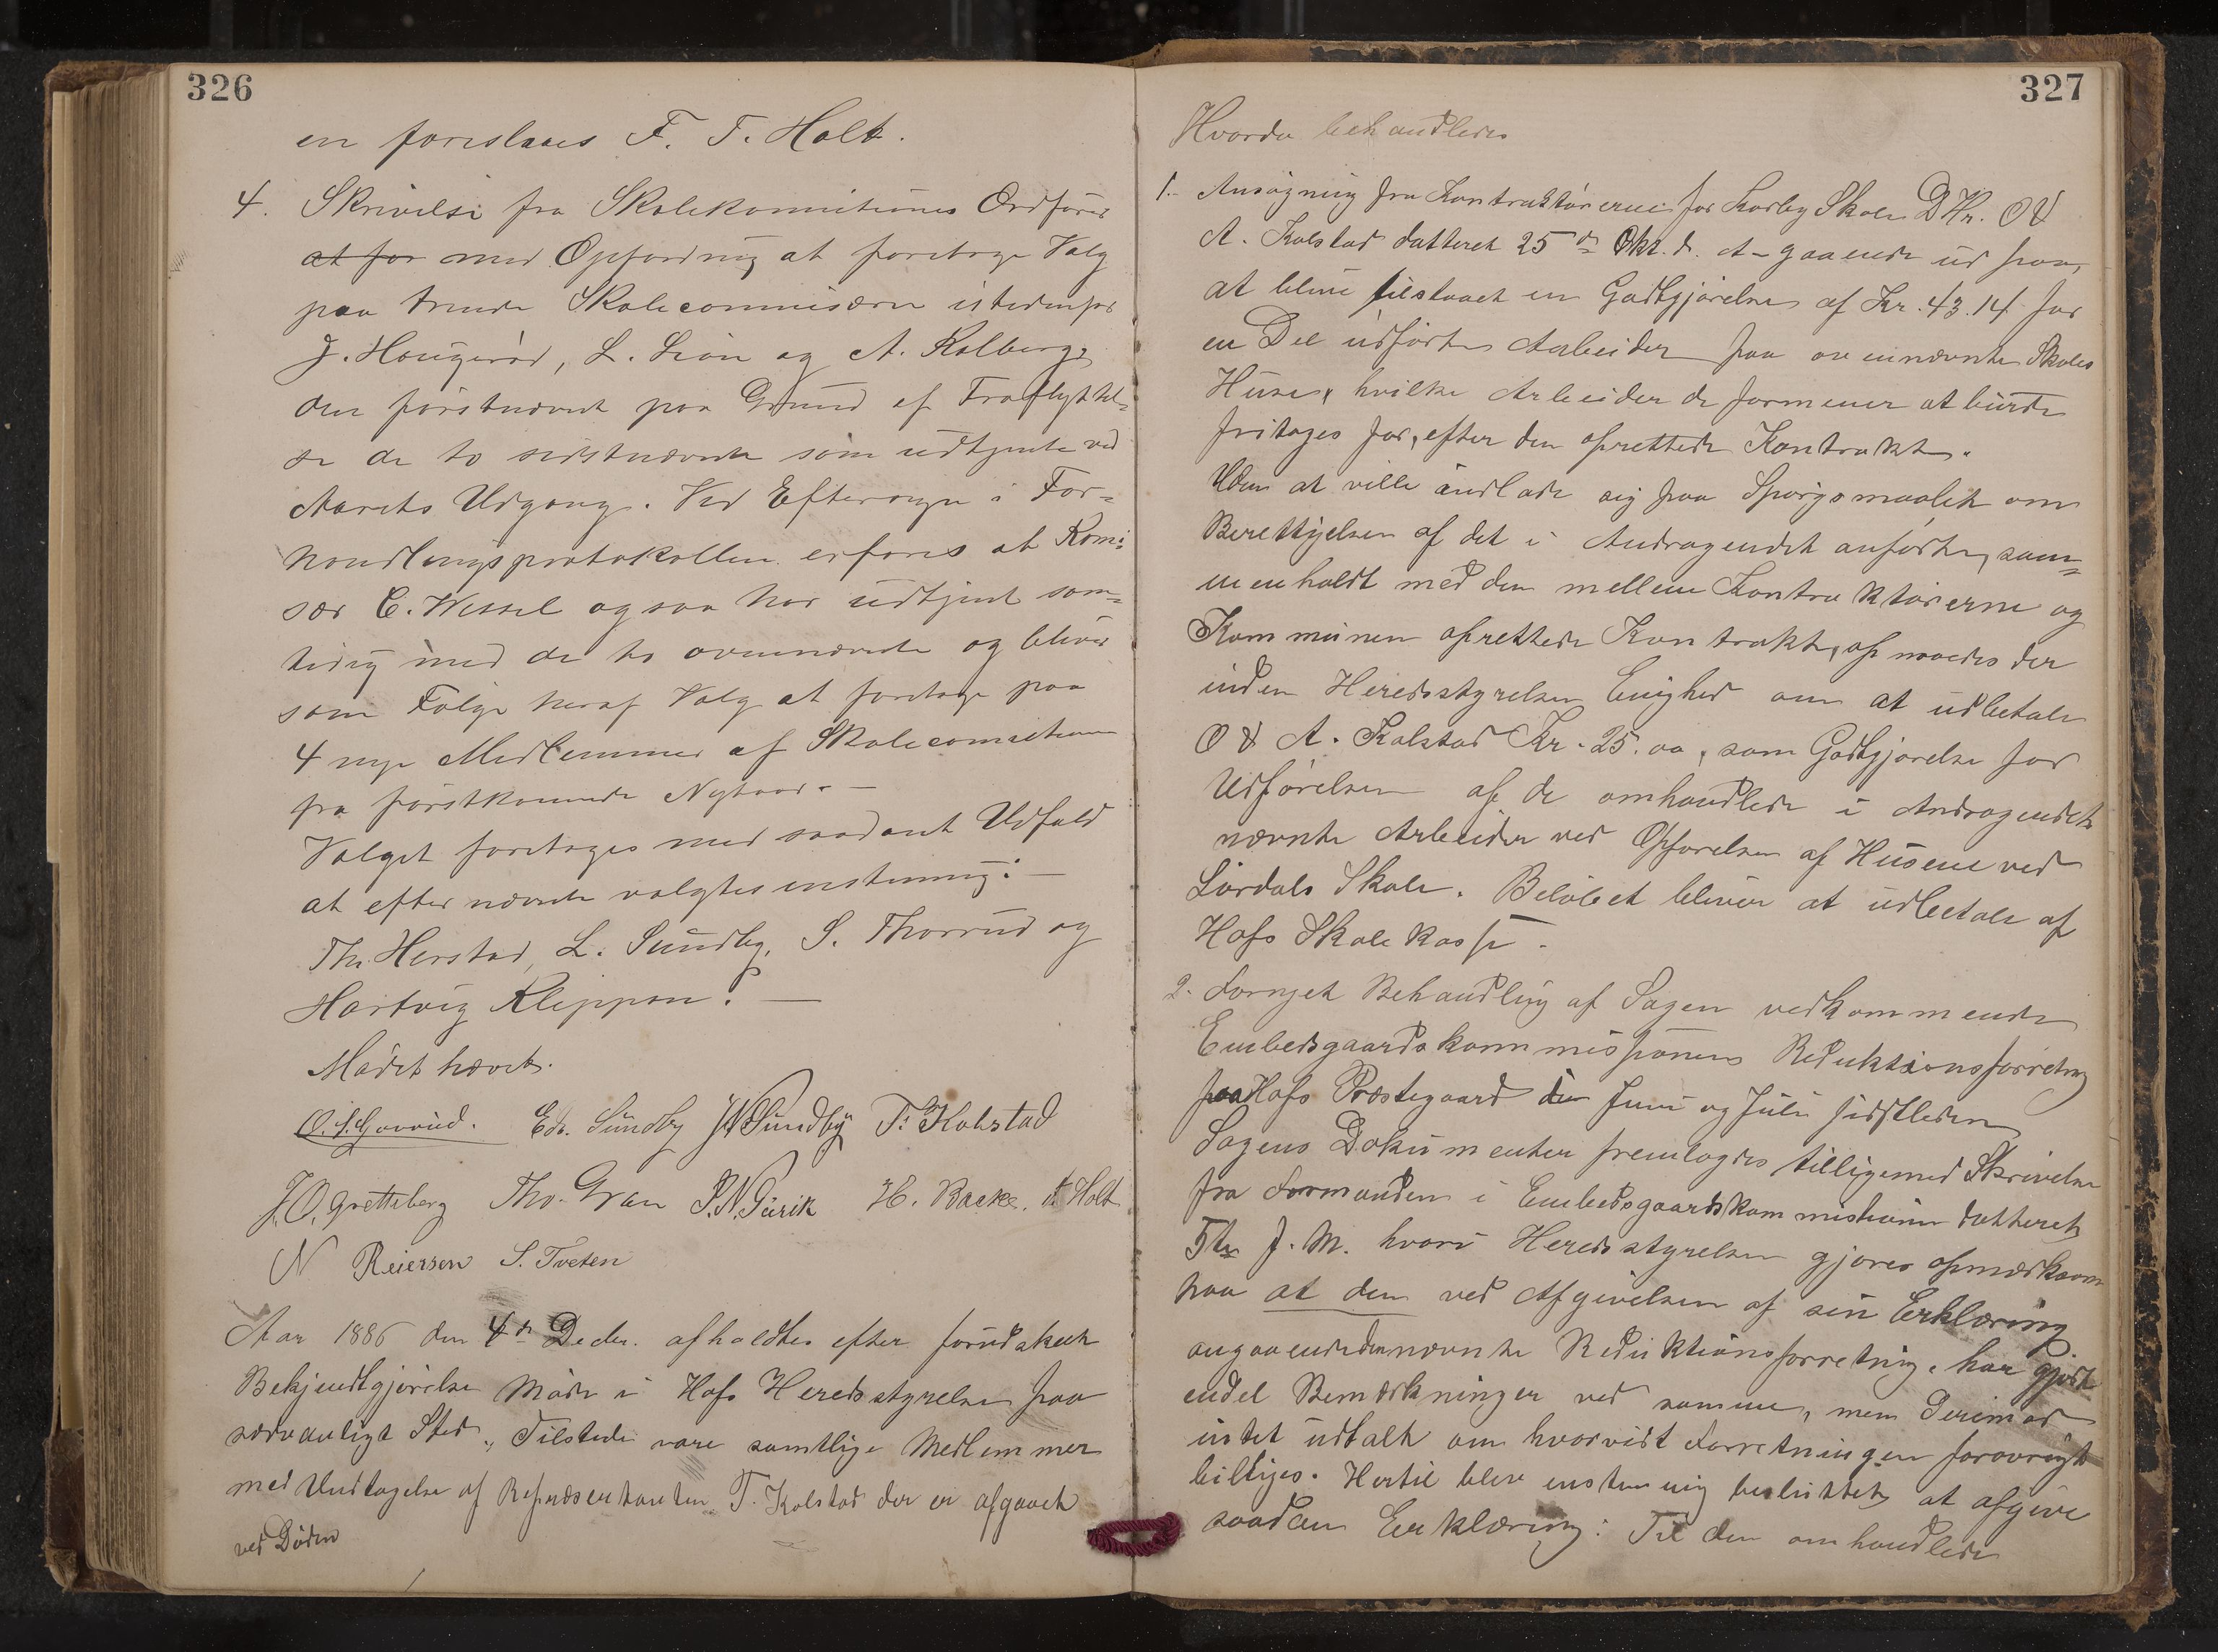 326
en foreslaaes F. T. Holt.
4. Skrivelse fra Skolekommitionens Ordfører
at for med Opfordring at foretage Valg
paa trende Skolecommisærer istedenfor
J. Hougerød, L. Lian og A. Kolberg,
den førstnævnte paa Grund af Fraflyttel-
se de to sidstnævnte som udtjente ved
Aarets Udgang. Ved Eftersyn i For-
handlingsprotokollen erfares at Komi-
sær C. Wessel ogsaa har udtjent sam-
tidig med de to ovennævnte og bliver
som Følge heraf Valg at foretage paa
4 nye Medlemmer af Skolecomitionen
fra førstkommende Nytaar. —
Valget foretages med saadant Udfald
at efternævnte valgtes enstemmig: —
Th. Herstad, L. Sundby, S. Thorrud og
Hartvig Kleppan. —
Mødet hævet.
Edv. Sundby J N Sundby T. Kolstad
J. O. Gretteberg Tho. Gran H. Bakke. A Holt
N Reiersen S. Tveten
Aar 1886 den 4de Decbr. afholdtes efter forudskeet
Bekjendtgjørelse Møde i Hofs Heredsstyrelse paa
sædvanligt Sted. Tilstede vare samtlige Medlemmer
med Undtagelse af Repræsentanten T. Kolstad der er afgaaet
ved Døden
327
Hvorda behandledes
1. Ansøgning fra Kontraktørerne for Skole D Hr. O &
A. Kolstad datteret 25de Okt. d. A. gaaende ud paa,
at blive tilstaaet en Godtgjørelse af Kr. 43.14 for
en Del udførte Arbeider paa ovennævnte Skoles
Huse, hvilke Arbeider de formener at burde
fritages for, efter den oprettede Kontrakt.
Uden at ville indlade sig paa Spørgsmaalet om
Berettigelsen af det i Andragendet anførte, sam-
menholdt med den mellem Kontraktørerne og
Kommunen oprettede Kontrakt, opnaaedes der
inden Heredsstyrelsen Enighed om at udbetale
O & A. Kolstad Kr. 25.00, som Godtgjørelse for
Udførelsen af de omhandlede i Andragendet
nævnte Arbeider ved Opførelsen af Husene ved
Skole. Beløbet bliver at udbetale af
Hofs Skolekasse.
2. Fornyet Behandling af Sagen vedkommende
Embedsgaardskommissionens Reduktionsforretning
paa Hofs Præstegaard i Juni og Juli sidstleden
Sagens Dokumenter fremlagdes tilligemed Skrivelse
fra Formanden i Embedsgaardskommistionen datteret
5te f. M. hvori Heredsstyrelsen gjøres opmærksom
paa at den ved Afgivelsen af sin Erklæring
angaaende nævnte Reduktionsforretning, har gjort
endel Bemærkninger ved samme, men Derimod
intet udtalt om hvorvidt Forretningen forøvrigt
billiges. Hertil blev enstemmig besluttet at afgive
saadan Erklæring: Til den omhandlede